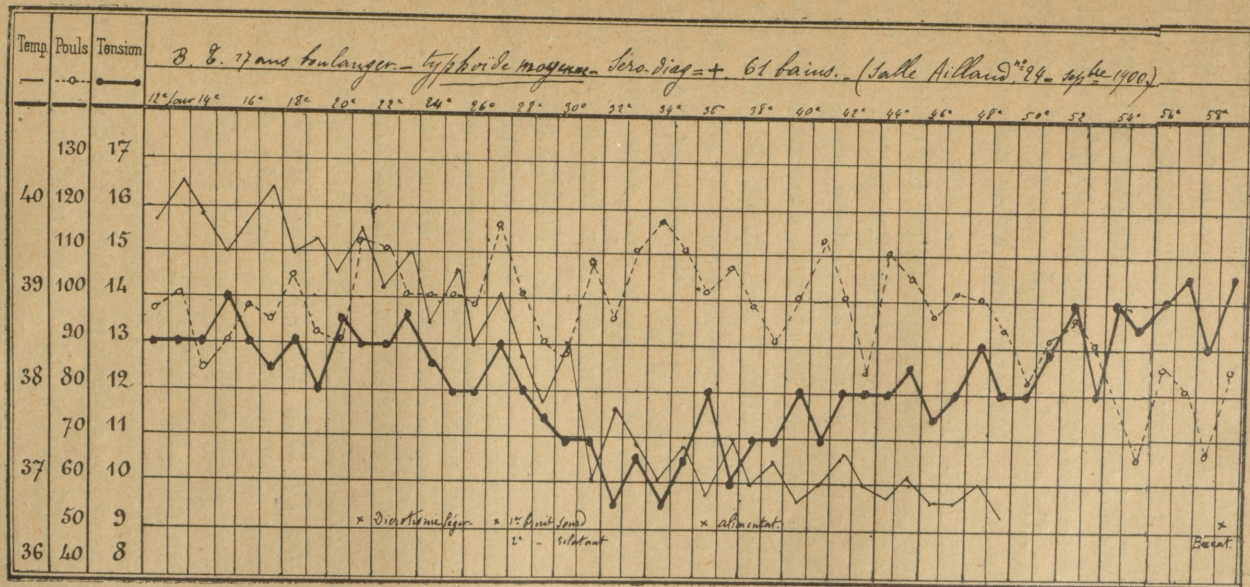 Temp. Pouls Tension
B. E. 17 ans boulanger. – typhoïde moyenne – Séro-diag = +. 61 bains. – (Salle Aillaud, nº 24 – sepbre 1900)
12e jour 14e 16e 18e 20e 22e 24e 26e 28e 30e 32e 34e 36e 38e 40e 42e 44e 46e 48e 50e 52 54e 56e 58e
130 17
40 120 16
110 15
39 100 14
90 13
38 80 12
70 11
37 60 10
50 9
36 40 8
× Dicrotisme léger.
× 1er bruit sourd
2e „ éclatant
× alimentat.
×
Exeat.